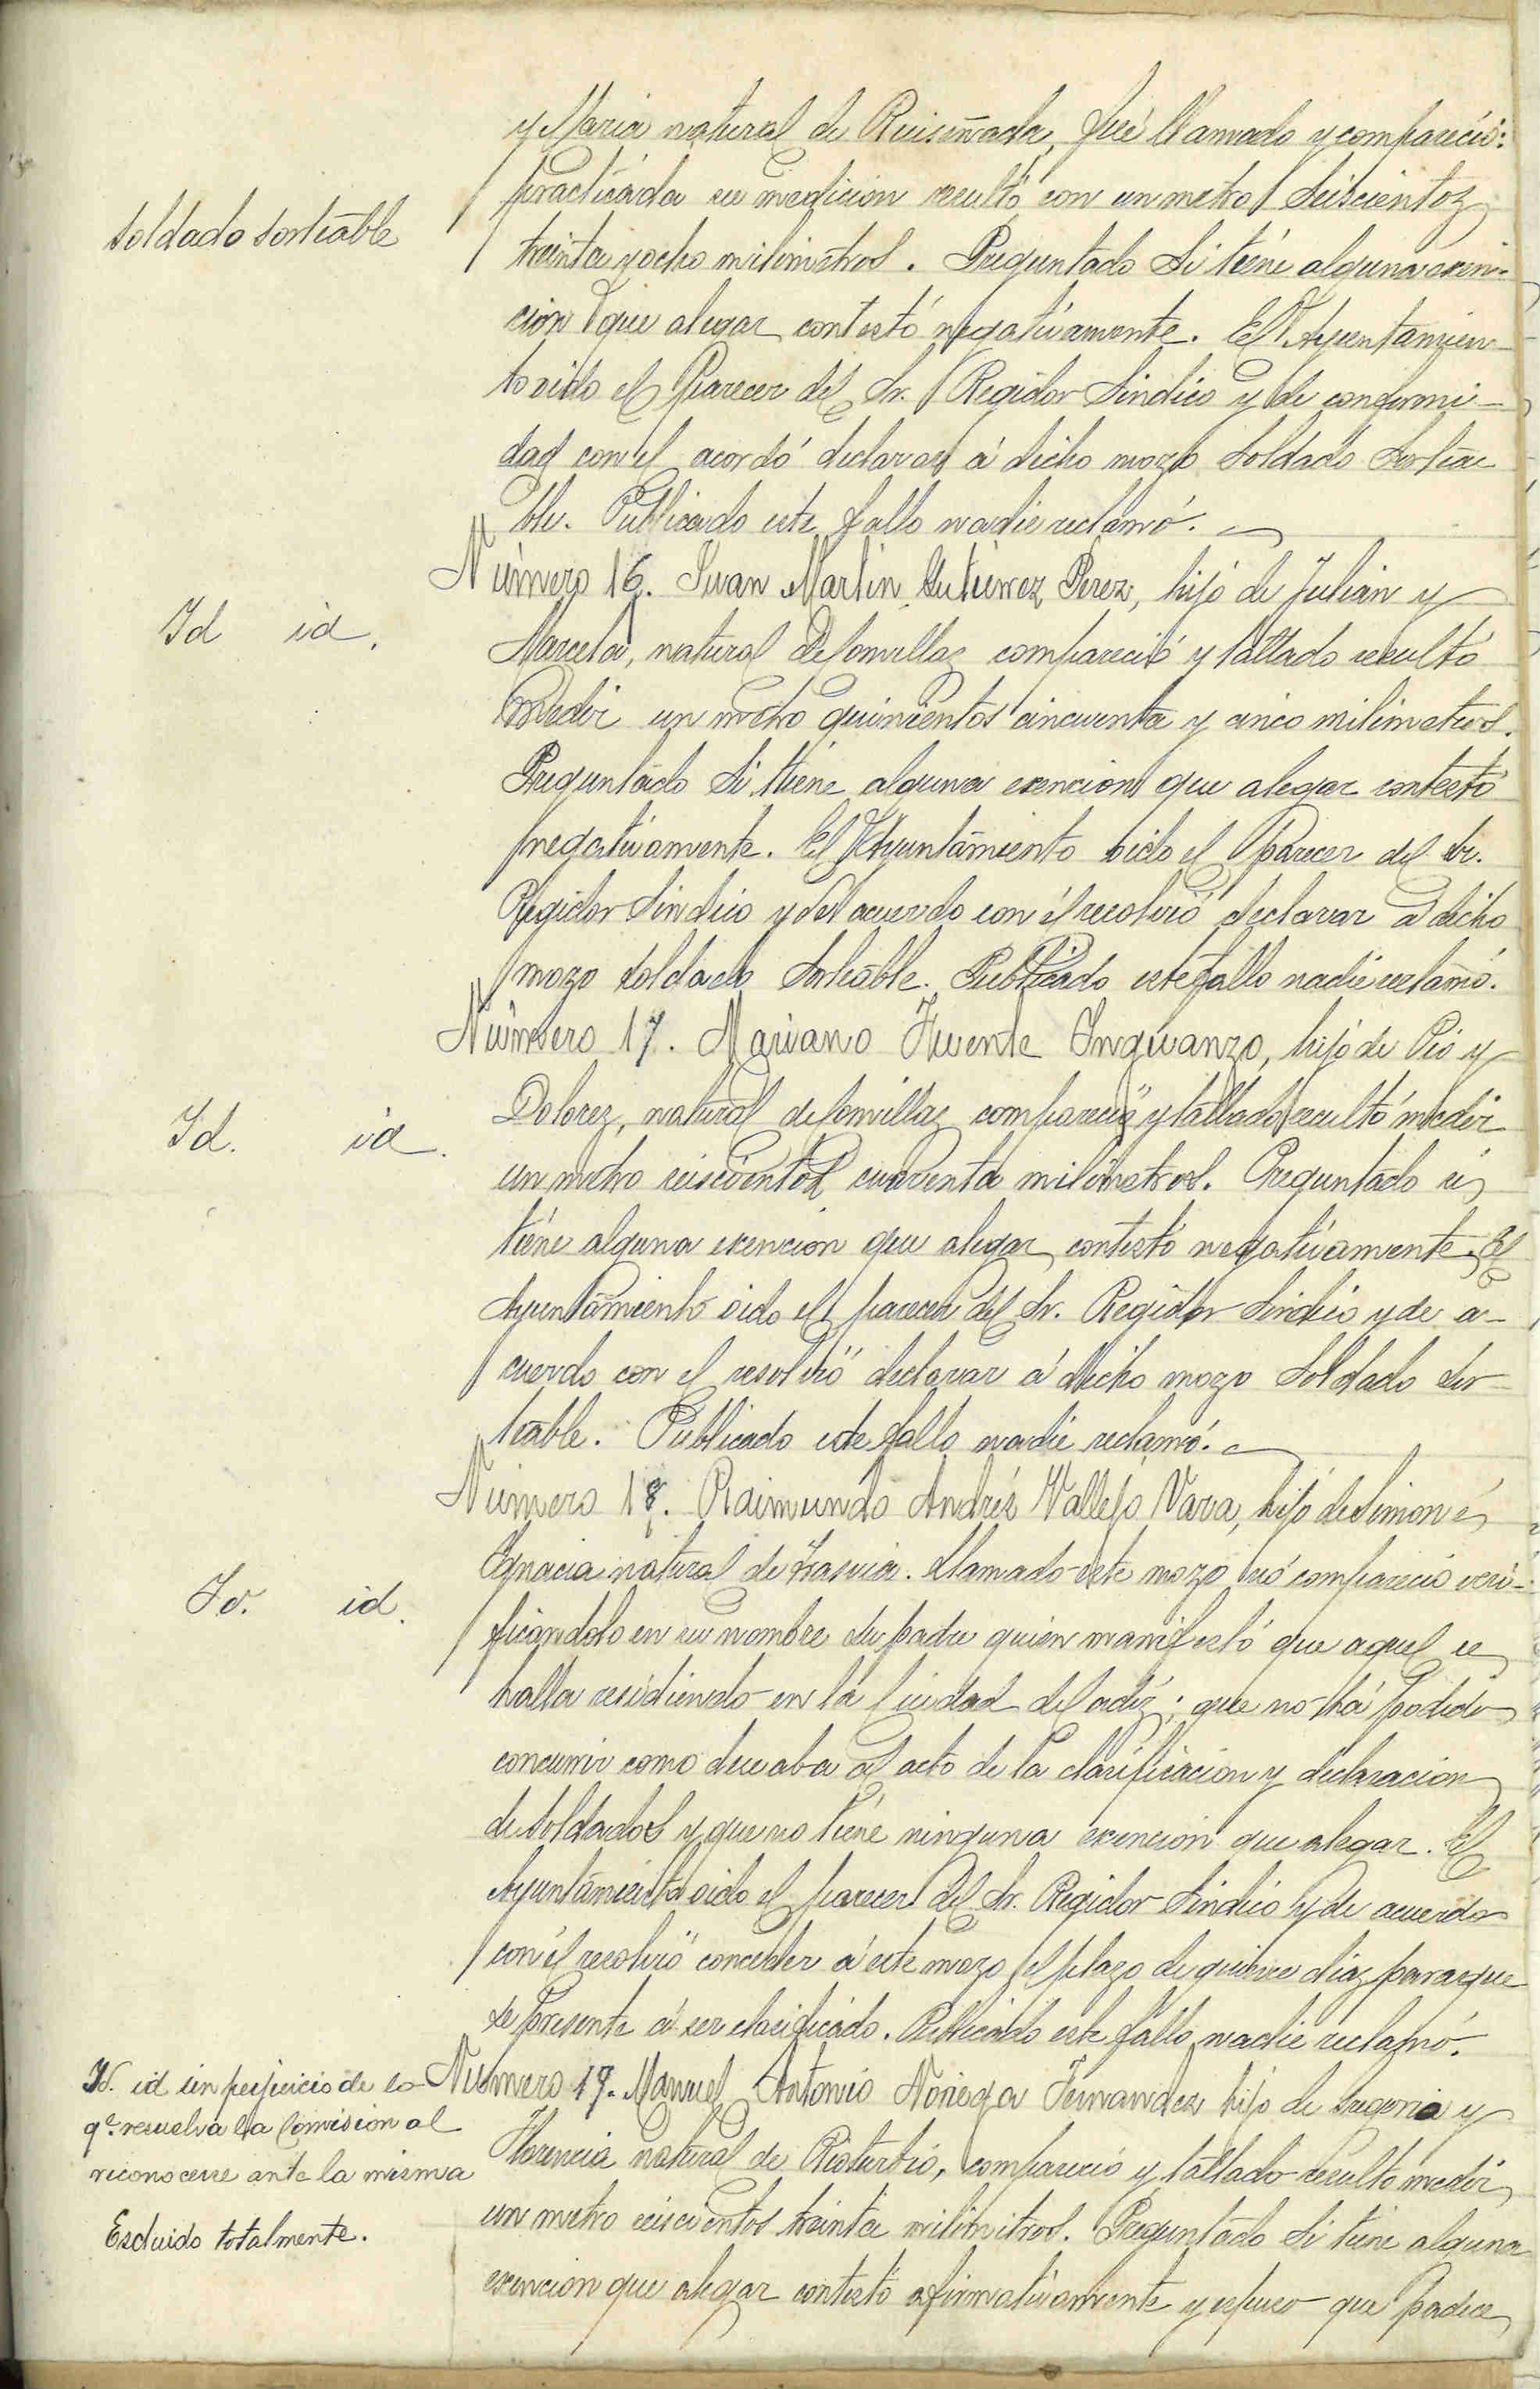 y Maria natural de Ruiseñada, fué llamado y compareció:
practicada su medicion resultó con un metro seiscientos
soldado sorteable
treinta y ocho milimetros. Preguntado si tiene alguna exen-
cion que alegar contestó negativamente. El Ayuntamien-
to oido el parecer del Sr. Regidor Sindico y de conformi-
dad con el acordó declarar á dicho mozo soldado sortea
ble. Publicado este fallo nadie reclamó.
Número 16. Juan Martin Gutierrez Perez, hijo de Julian y
Id id.
Marcela, natural de Comillas compareció y tallado resultó
medir un metro quinientos cincuenta y cinco milimetros.
Preguntado si tiene alguna exencion que alegar contestó
negativamente. El Ayuntamiento oido el parecer del Sr.
Regidor Sindico y de acuerdo con él resolvió declarar á dicho
mozo soldado sorteable. Publicado este fallo nadie reclamó.
Número 17. Mariano Fuente Inguanzo, hijo de Pio y
Id. id.
Dolores, natural de Comillas compareció y tallado resultó medir
un metro seiscientos cuarenta milimetros. Preguntado si
tiene alguna exencion que alegar contestó negativamente. El
Ayuntamiento oido el parecer del Sr. Regidor Sindico y de a-
cuerdo con el resolvió declarar á dicho mozo soldado sor-
teable. Publicado este fallo nadie reclamó.
Número 18. Raimundo Andrés Vallejo Vara, hijo de Simon é
Ignacia natural de Trasvia. Llamado este mozo nó compareció veri-
Id. id.
ficandolo en su nombre su padre quien manifestó que aquel se
halla residiendo en la Ciudad de Cadiz; que no há podido
concurrir como deseaba al acto de la clasificacion y declaracion
de soldados y que no tiene ninguna exencion que alegar. El
Ayuntamiento oido el parecer del Sr. Regidor Sindico y de acuerdo
con él resolvió conceder á este mozo el plazo de quince dias para que
se presente á ser clasificado. Publicado este fallo nadie reclamó.
Número 19. Manuel Antonio Noriega Fernandez hijo de Gregorio y
Id. id sin perjuicio de lo
q.e resuelva la Comision al
reconocerse ante la misma
Escluido totalmente.
Florencia natural de Rioturbio, compareció y tallado resultó medir
un metro seiscientos treinta milimetros. Preguntado si tiene alguna
exencion que alegar contestó afirmativamente y espuso que padece